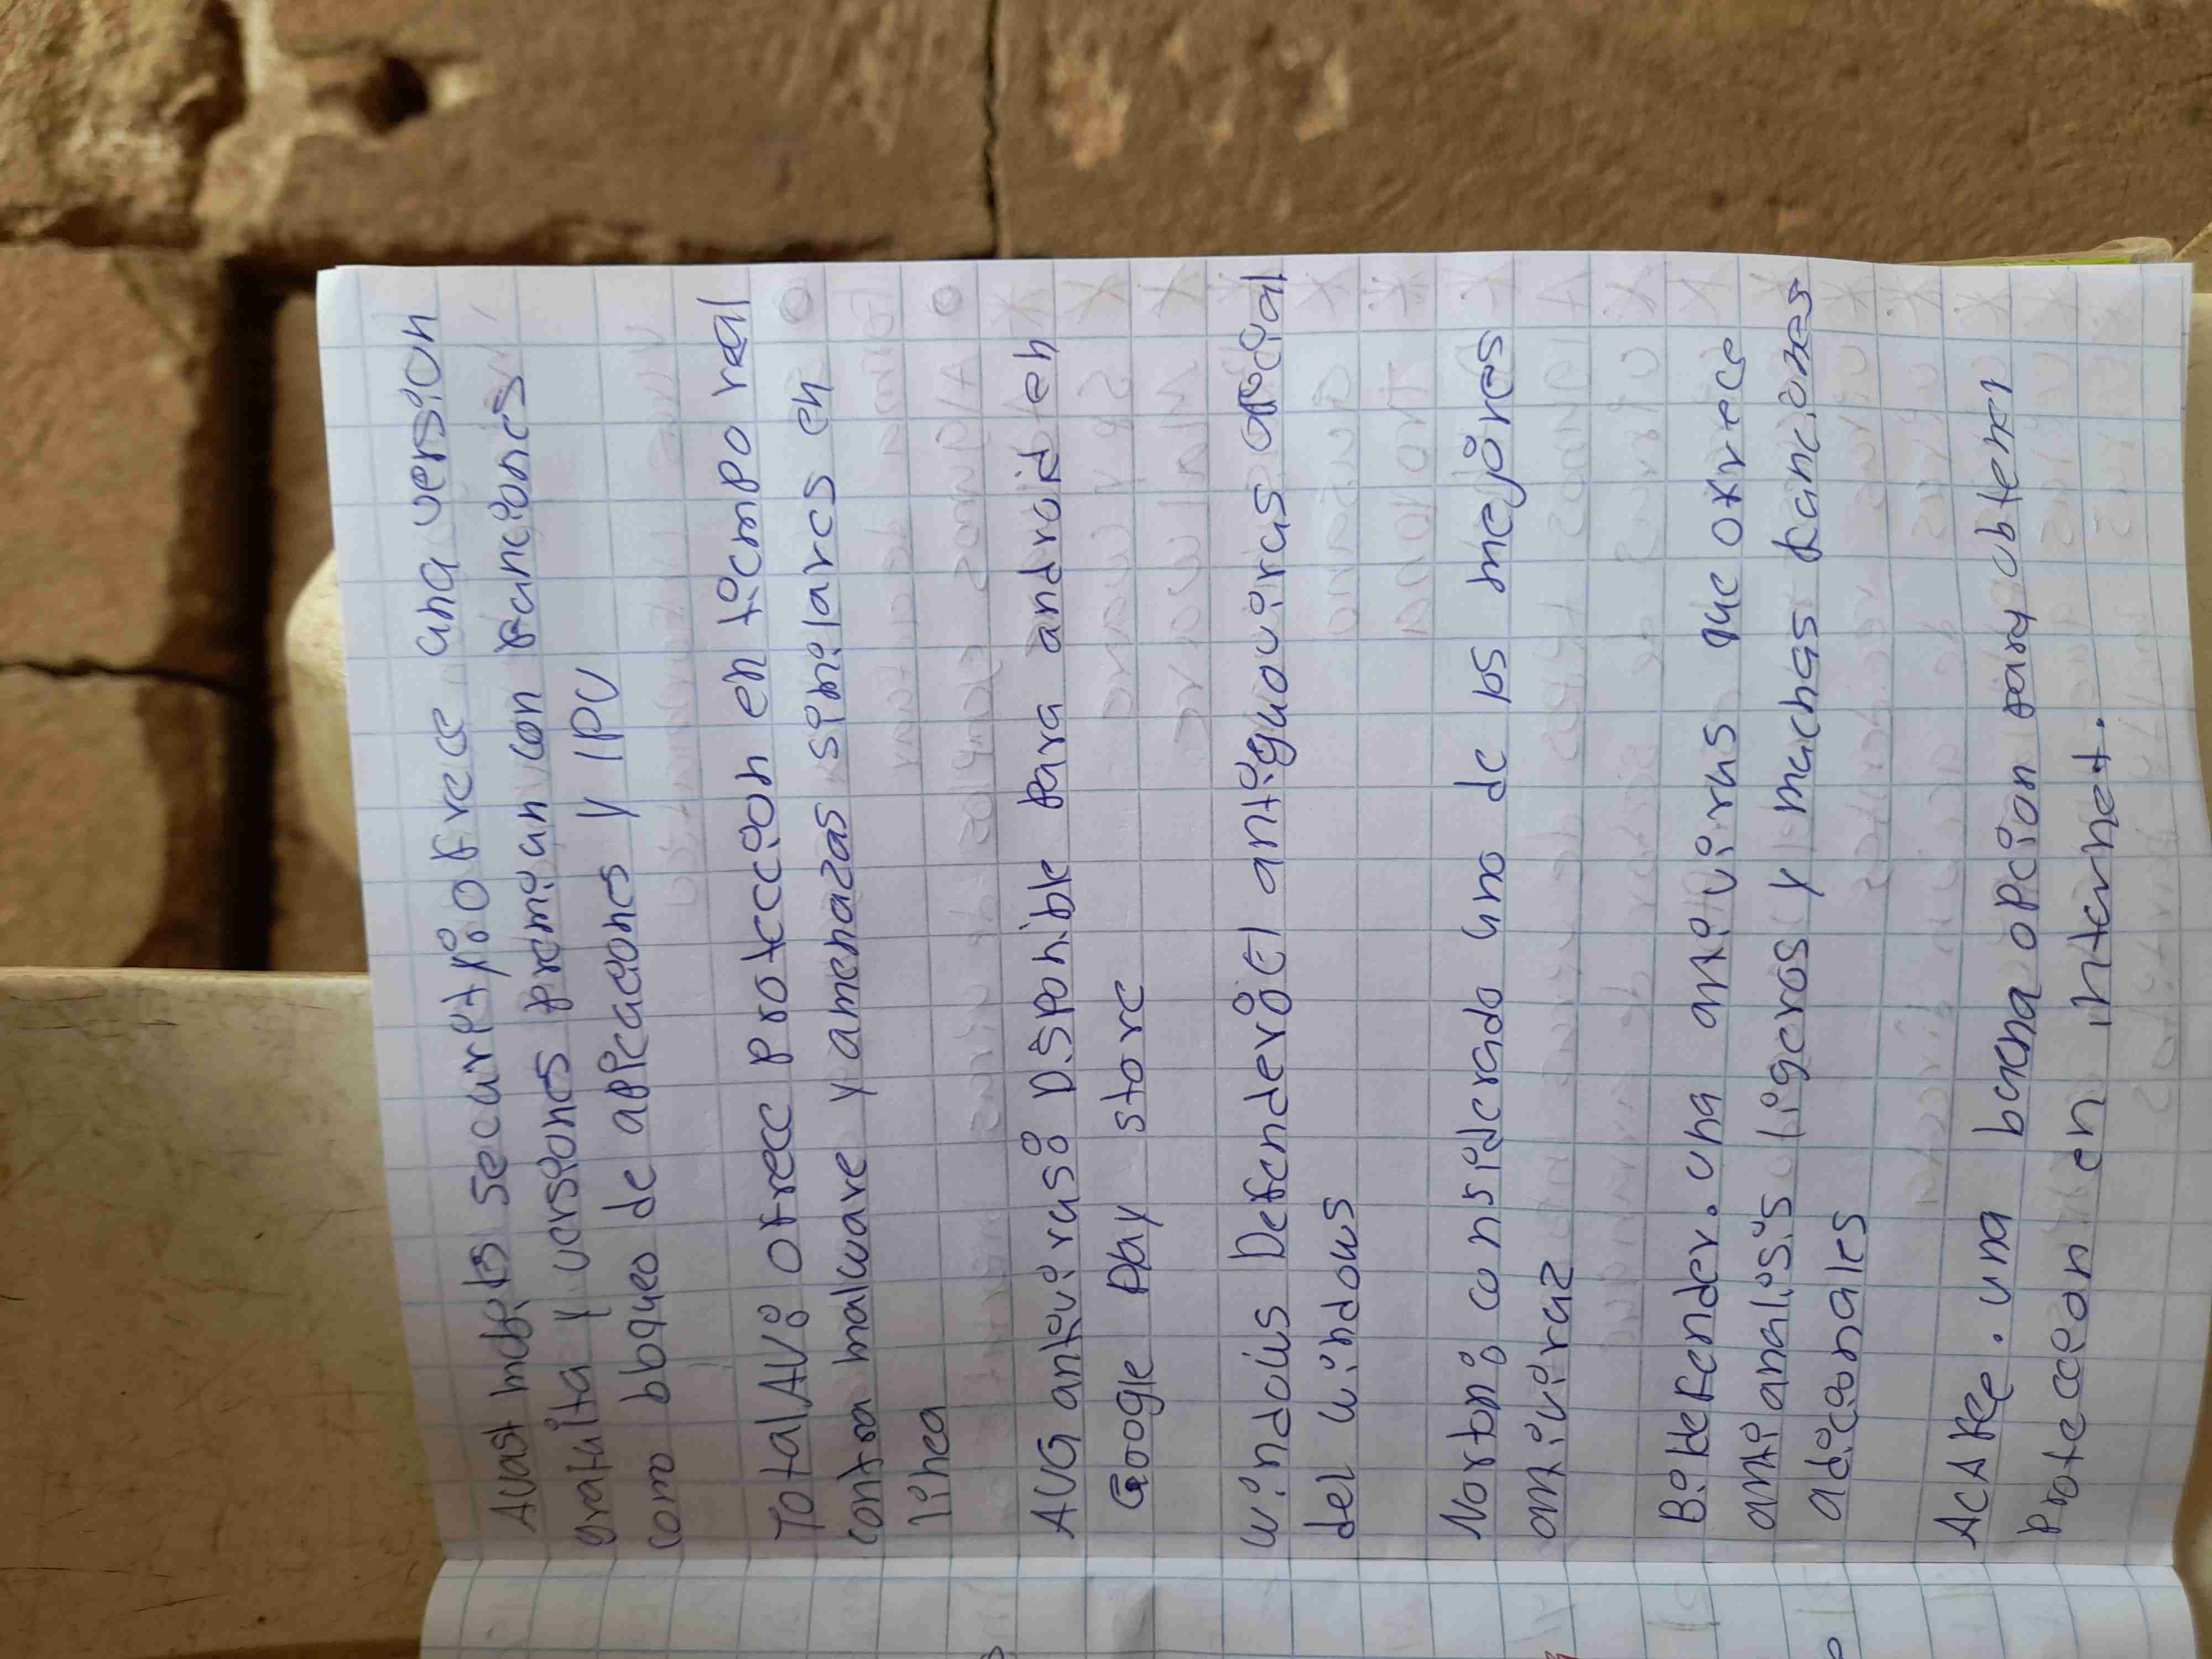 Avast security: ofrece una version
gratuita y versiones premiun con funciones
como bloqueo de applicaciones y IPV
TotalAV: ofrece proteccion en tiempo real
contra malware y amenazas similares en
linea
AVG antivirus: Disponible para android en
Google play store
windows Defender: El antiguovirus oficial
del windows
Norton: considerado uno de los mejores
antiviraz
Bitdefender. una antivirus que ofrece
anti analisis ligeros y muchas funciones
adicionales
una buena opcion para obtener
Proteccion en internet.